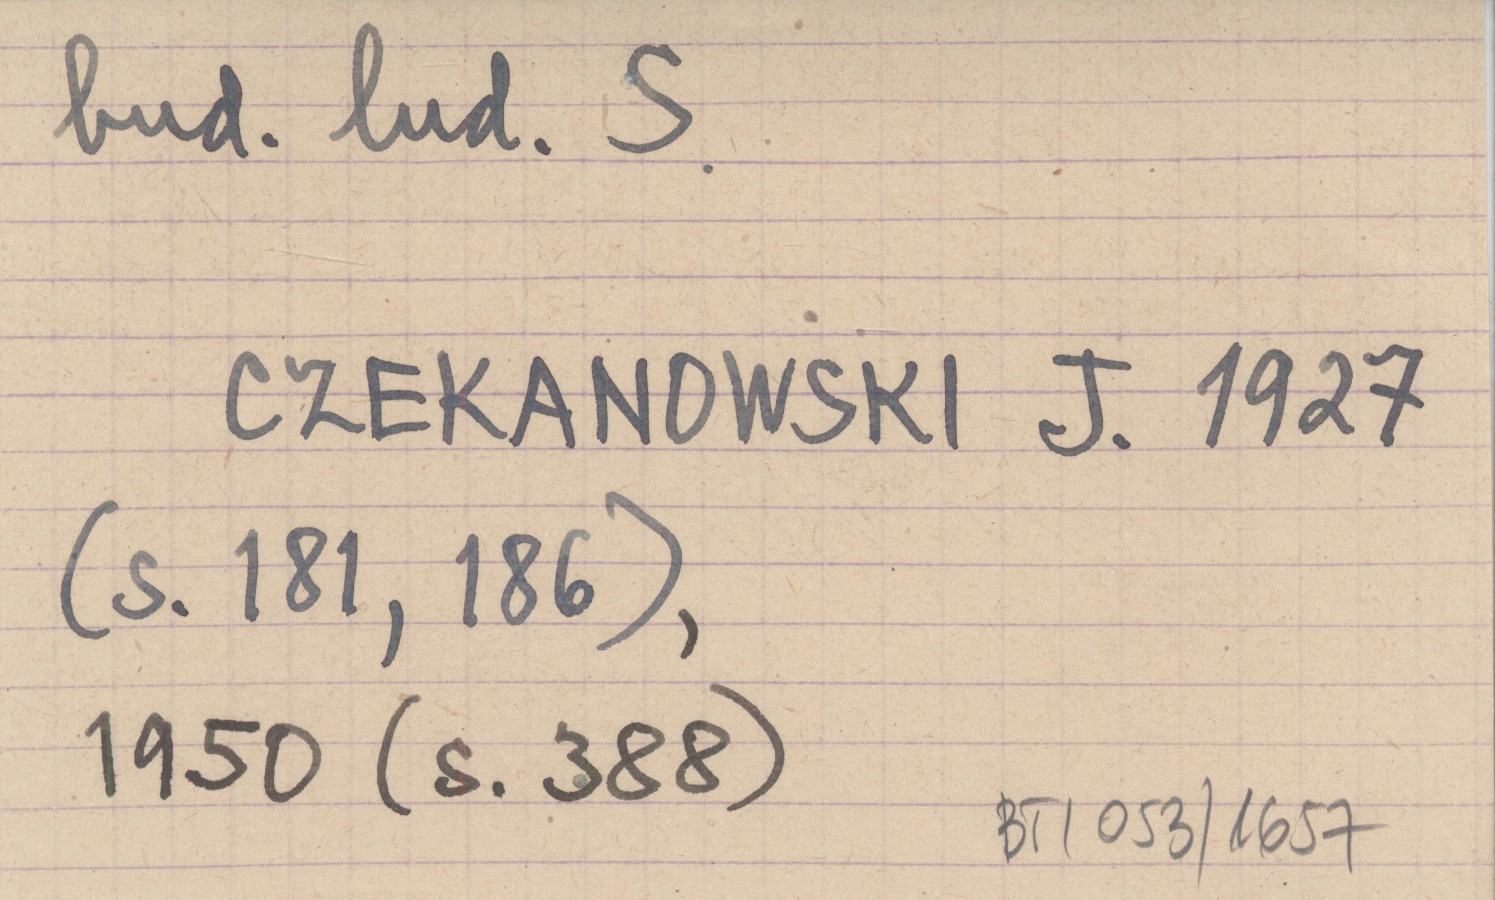 bud. lud. S.
CZEKANOWSKI J. 1927
(s. 181, 186),
1950 (s. 388)
BTI 053/1657